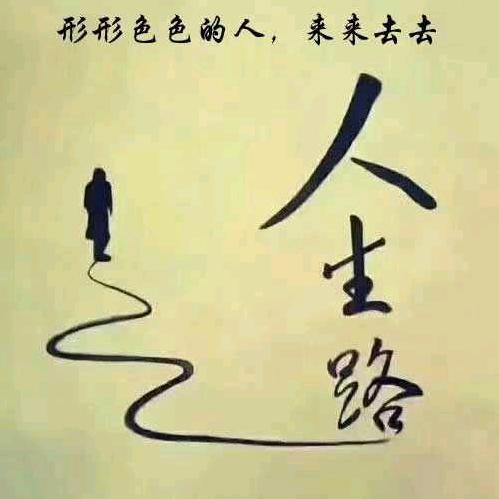 形形色色的人，来来去去
人生路